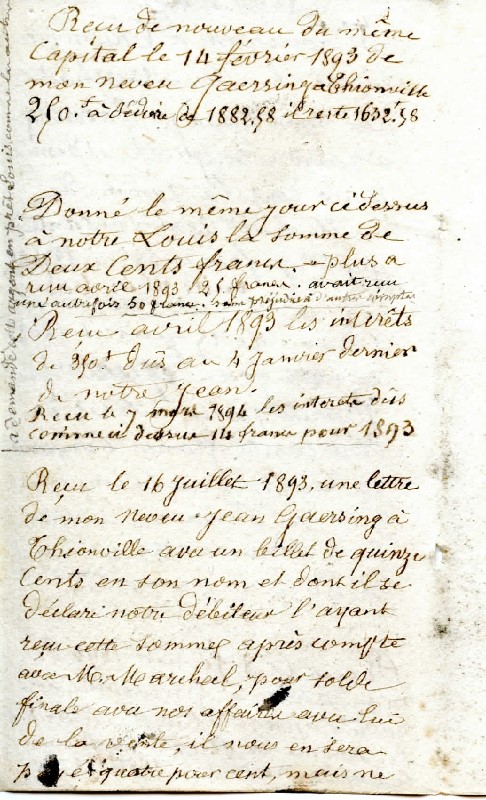 Reçu de nouveau du même
Capital le 14 février 1893 de
mon neveu Gaersing à Thionville
250.f à déduire de 1882.58 il reste 1632.f58
Donné le même jour ci dessus
à notre Louis la somme de
Deux Cents francs. plus a
reçu avril 1893 25 francs. avait reçu
une autre fois 50 francs. sans préjudice d'autres comptes
Reçu avril 1893 les intérêts
de 350.f dûs au 4 Janvier dernier
de notre Jean.
Reçu le 7 mars 1894 les intérêts dûs
comme ci dessus 14 francs pour 1893
Reçu le 16 Juillet 1893, une lettre
de mon neveu Jean Gaersing à
Thionville avec un billet de quinze
Cents en son nom et dont il se
déclare notre débiteur l'ayant
reçu cette somme après compte
avec M. Marchal, pour solde
finale avec nos affaires avec lui
de la vente, il nous en sera
payé quatre pour cent, mais ne
argent en prêt Louis comme